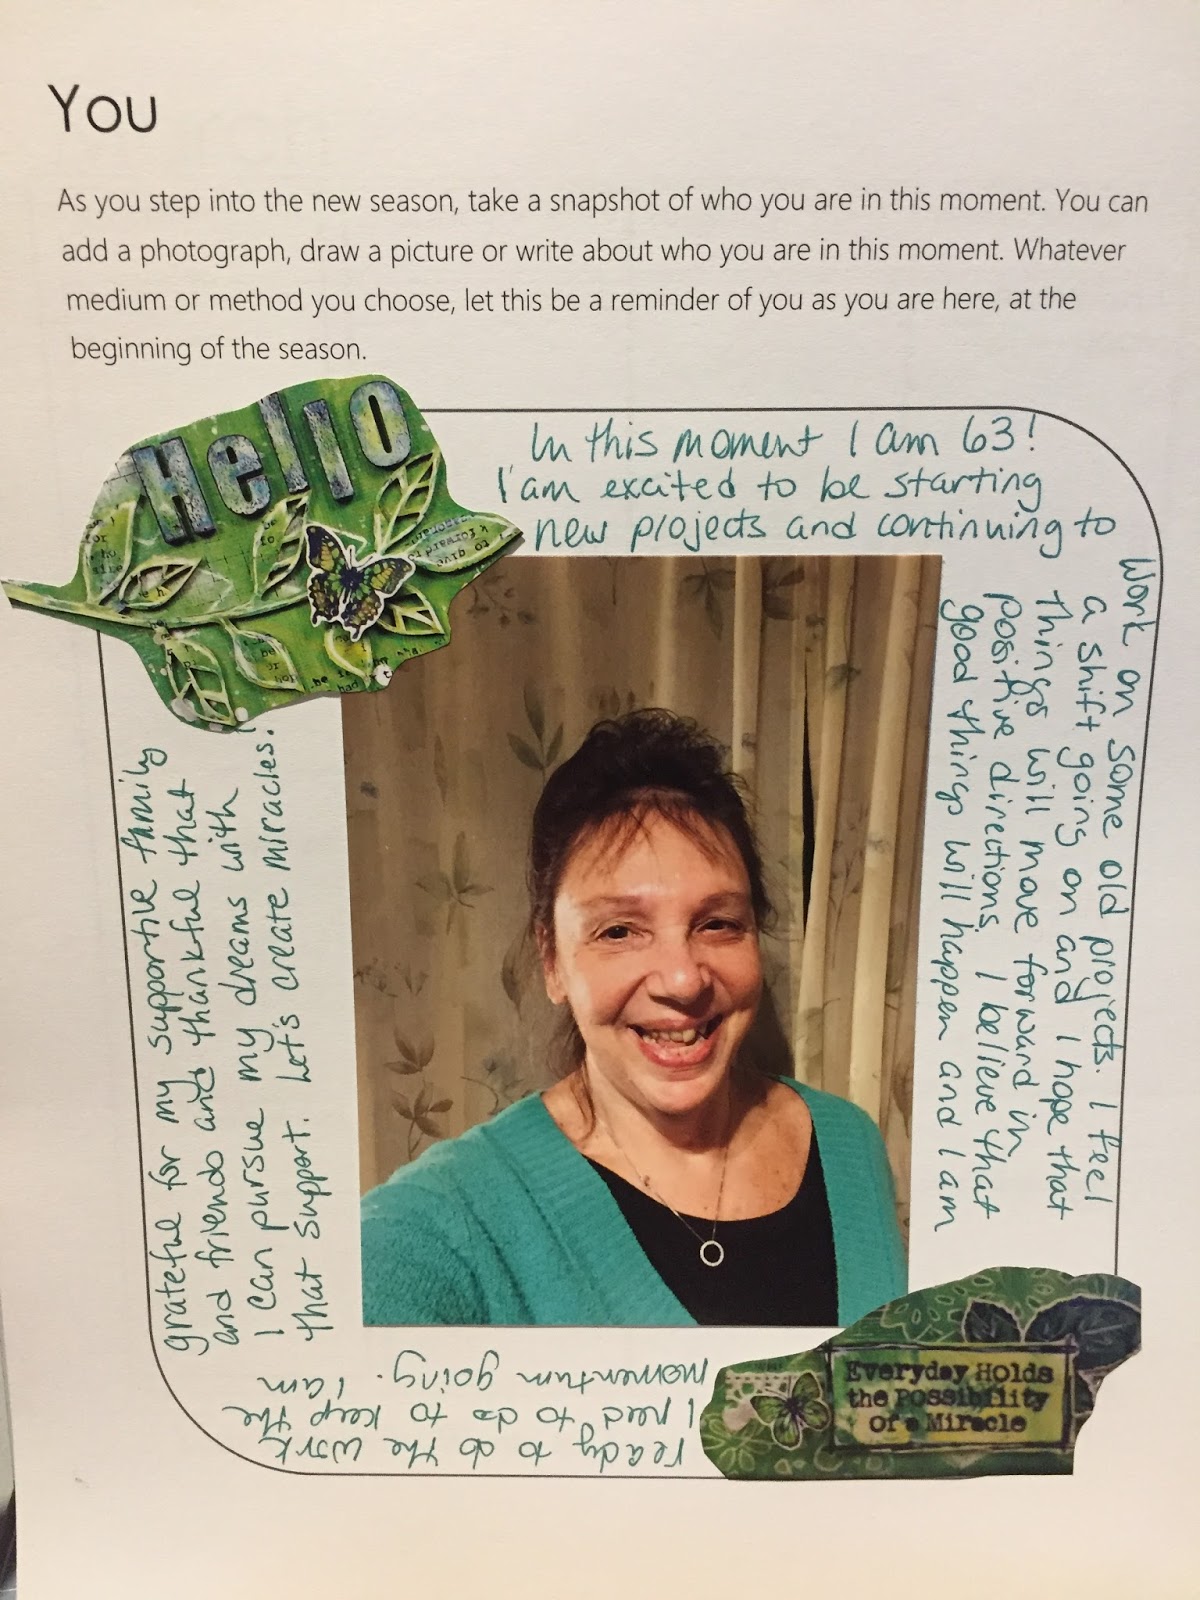 You
As you step into the new season, take a snapshot of who you are in this moment. You can
add a photograph, draw a picture or write about who you are in this moment. Whatever
medium or method you choose, let this be a reminder of you as you are here, at the
beginning of the season.
Hello
In this moment I am 63!
I am excited to be starting
new projects and continuing to
work on some old projects. I feel
a shift going on and I hope that
things will move forward in
positive directions. I believe that
good things will happen and I am
ready to do the work
I need to do to keep the
momentum going. I am
grateful for my supportive family
and friends and thankful that
I can pursue my dreams with
that support. Let's create miracles!
Everyday Holds
the Possibility
of a Miracle